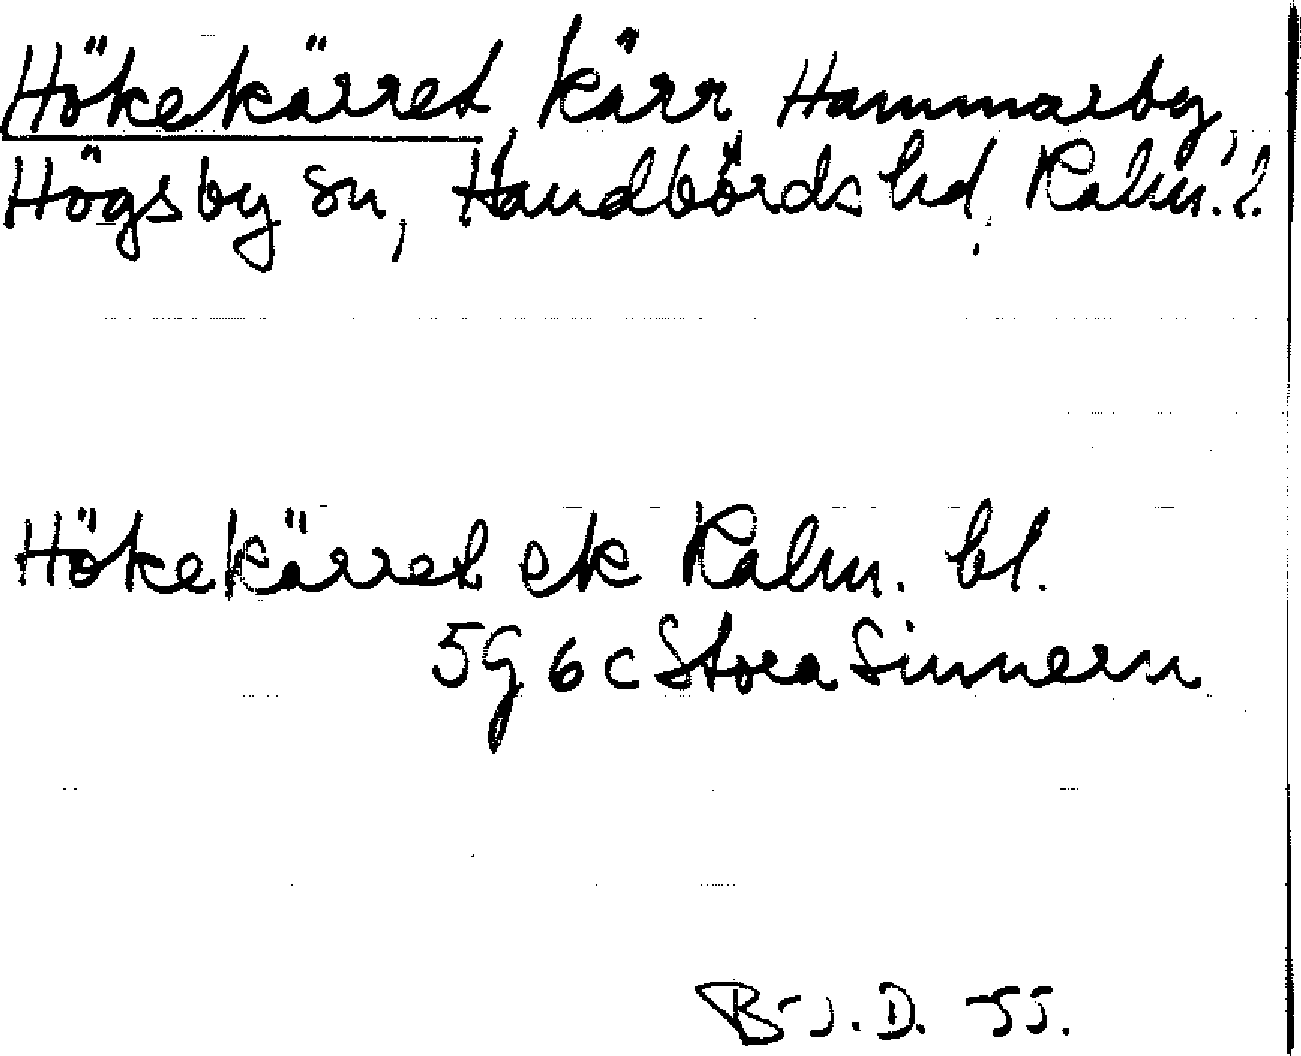 Hökekärret kärr Hammarby,
Högsby sn, Handbörds hd, Kalm. l.
Hökekärret ek Kalm. bl.
5G 6c Stora Sinnern
B-J. D. -55.